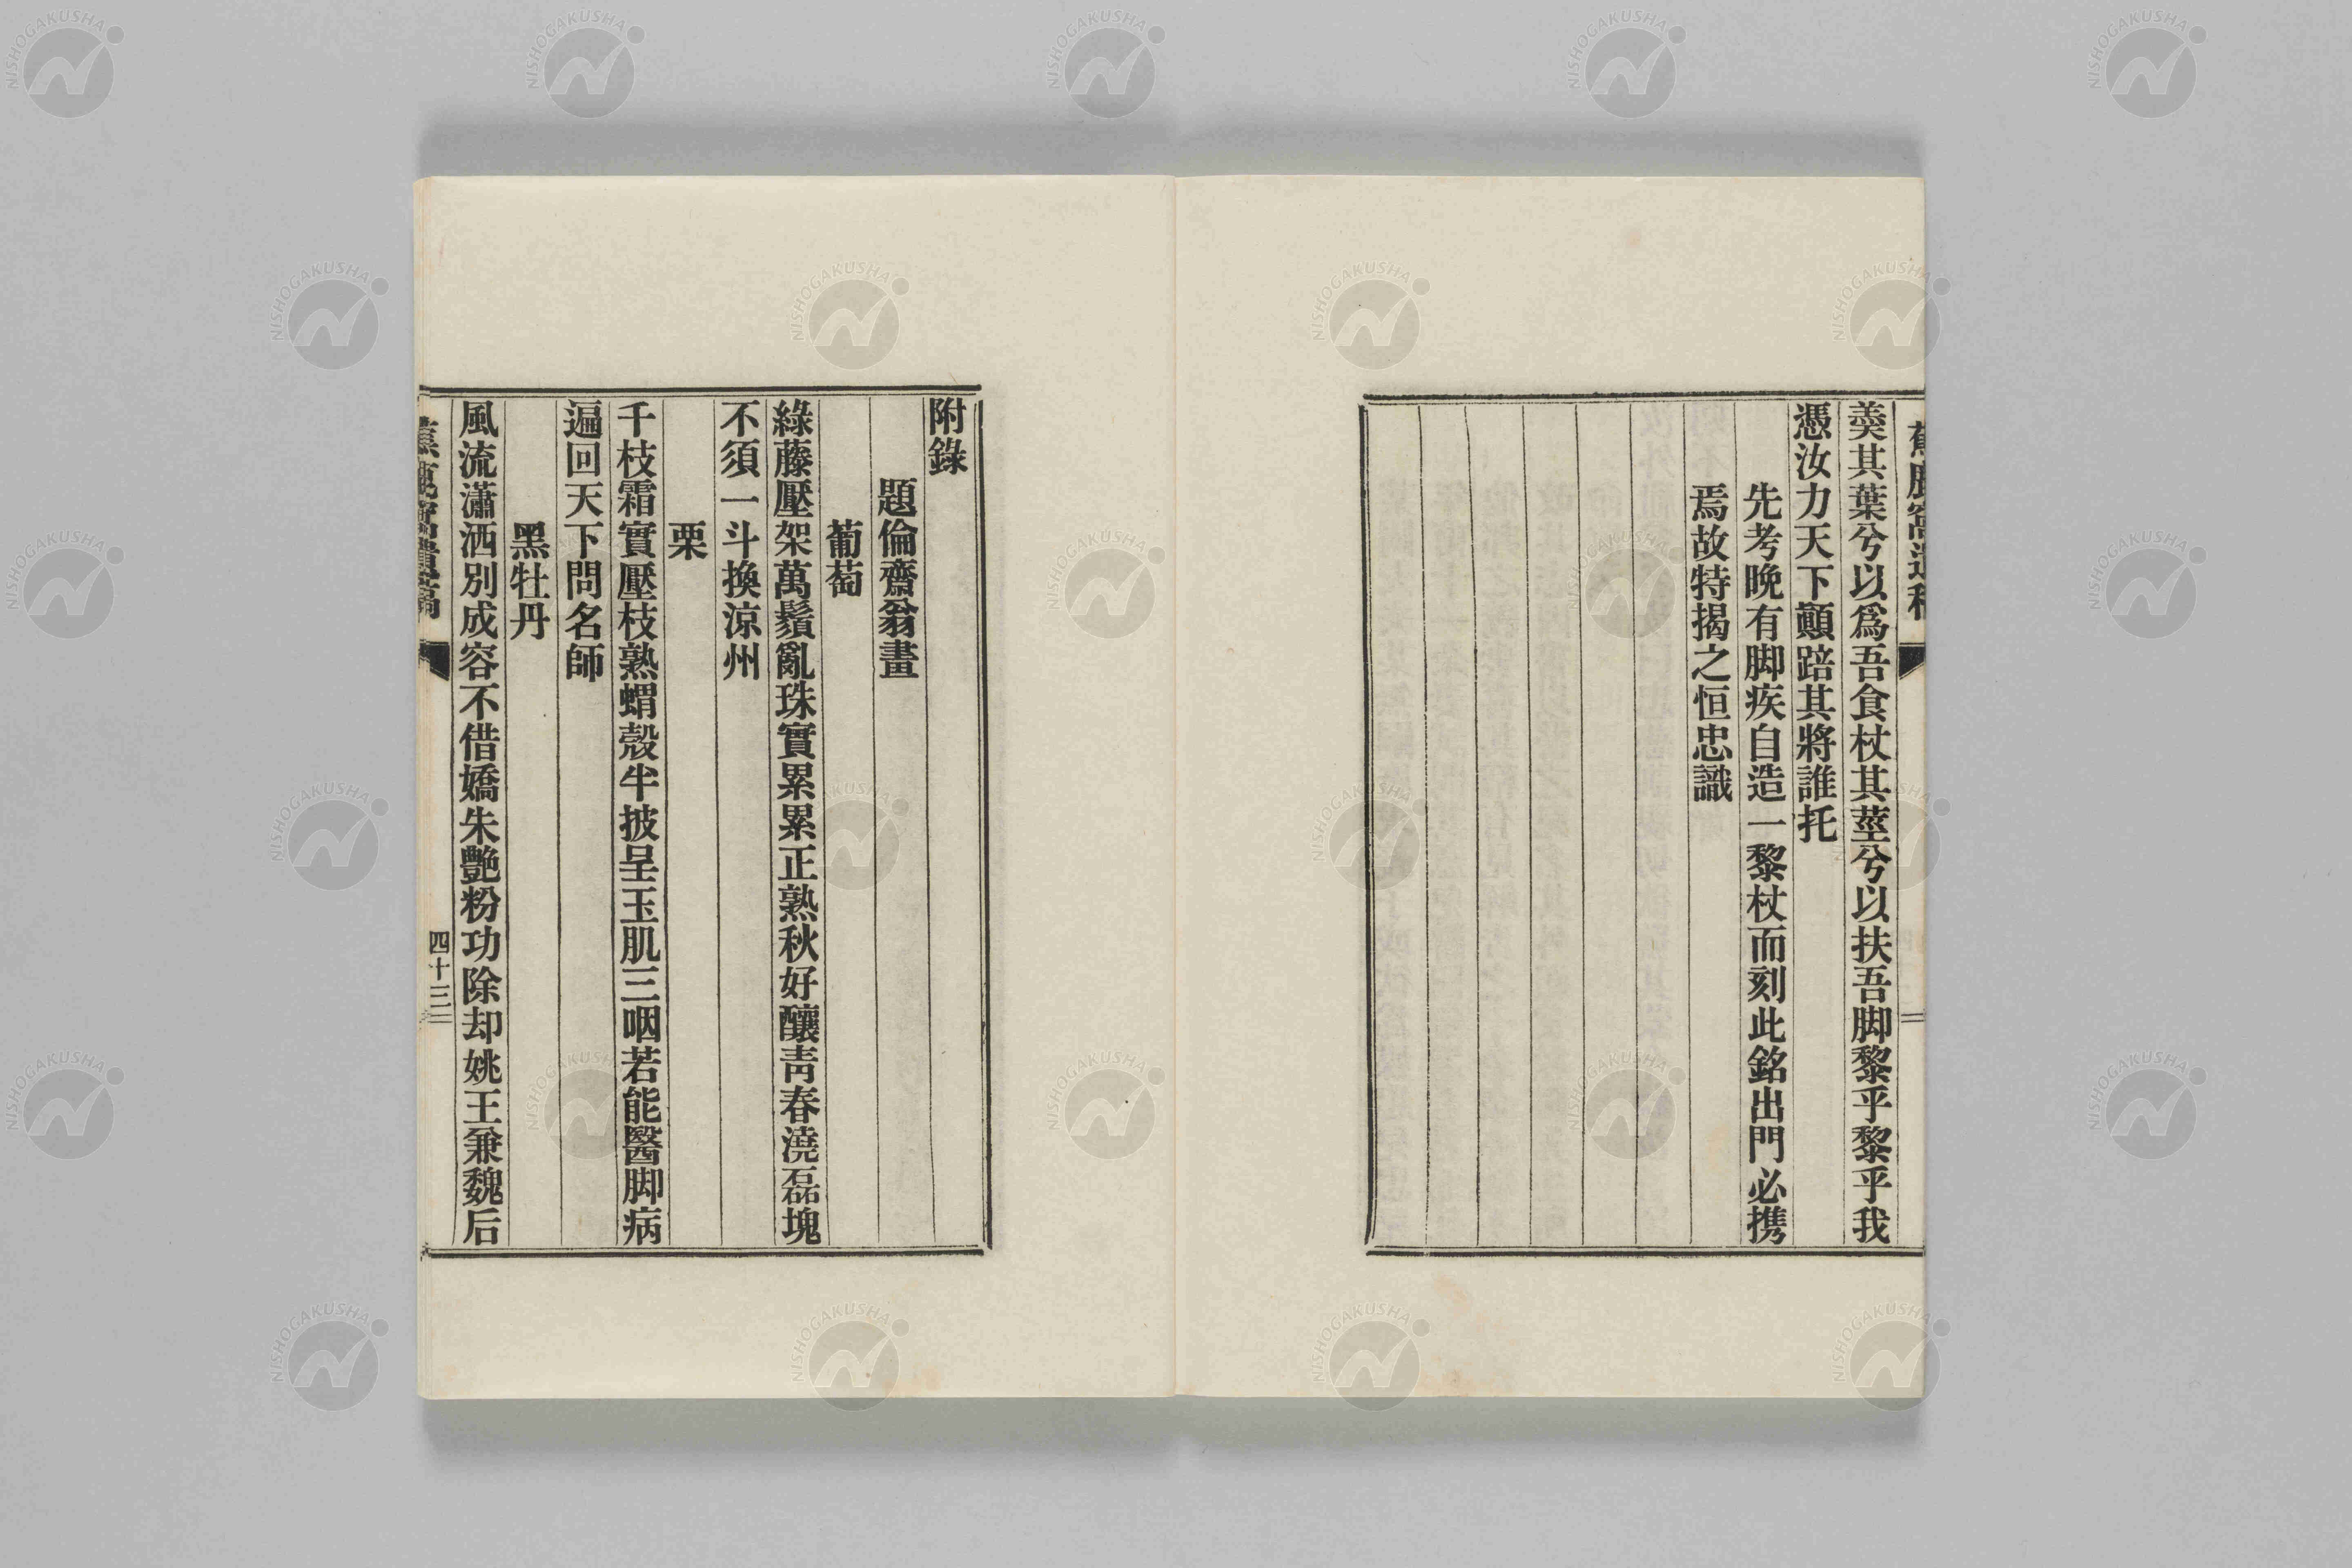 羮其葉兮以爲吾食杖其莖兮以扶吾脚黎乎黎乎我
憑汝力天下顚踣其將誰托
先考晩有脚疾自造一黎杖而刻此銘出門必携
焉故特揭之恒忠識
附錄
題倫齋翁畫
葡萄
綠藤壓架萬鬚亂珠實累累正熟秋好釀靑春澆磊塊
不須一斗換涼州
栗
千枝霜實壓枝熟蝟殼半披呈玉肌三咽若能醫脚病
遍回天下問名師
黑牡丹
風流瀟洒別成容不借嬌朱艷粉功除却姚王兼魏后
四十三
NISHOGAKUSHA